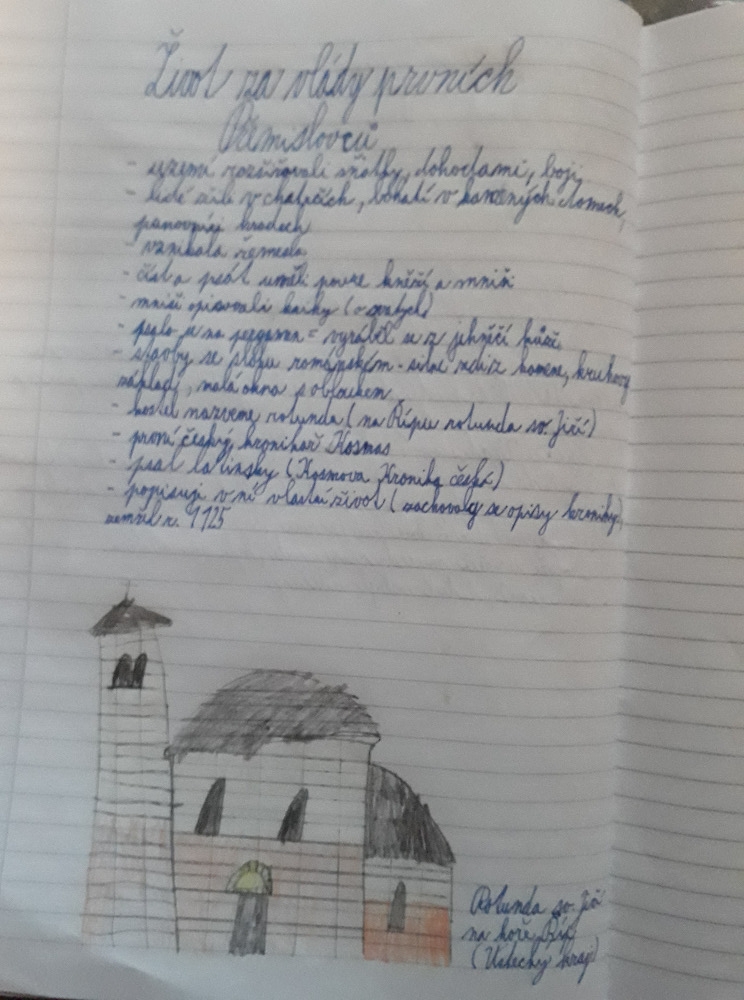 Život za vlády prvních
Přemislovců
- území rozšiřovali sňatky, dohodami, boji
- lidé žili v chatrčích, bohatí v kamených domech,
panovníci hradech
- vznikala řemesla
- číst a psát uměli pouze kněží a mniši
- mniši opisovali knihy (o svatých)
- psalo se na pergamen = vyráběl se z jehněčí kůže
- stavby ve slohu románském - silné zdi z kamene, kruhový
základ, malá okna s obloukem
- kostel nazveme rotunda (na Řípu rotunda sv. Jiří)
- první český kronikář Kosmas
- psal latinsky (Kosmova Kronika česká)
- popisuje v ní vlastní život (zachovaly se opisy kroniky),
zemřel r. 1125
Rotunda sv. Jiří
na hoře Říp
(Ústecký kraj)